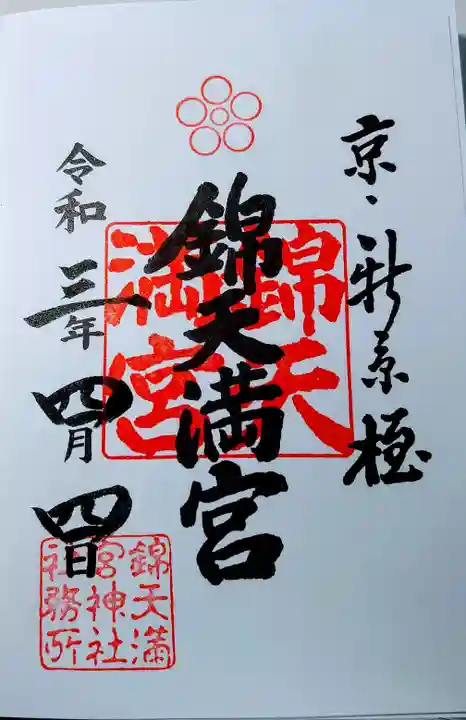 京・新京極
錦天満宮
錦天
満宮
令和三年四月四日
錦天満
宮神社
社務所